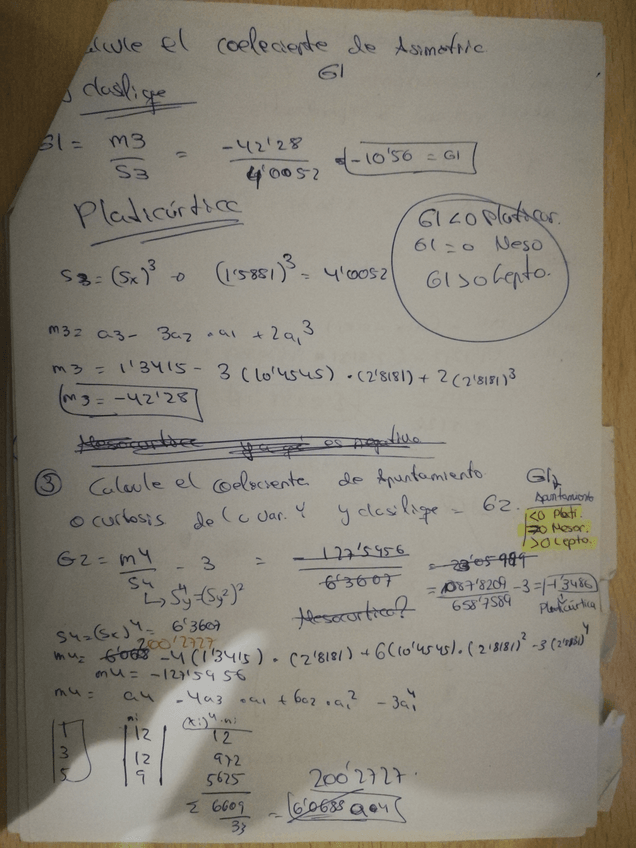 Calcule el coeficiente de Asimetria
G1
y clasifique
G1 = m3/S3 = -42'28/4'0052 = -10'56 = G1
Platicúrtica
G1<0 Platicur.
G1=0 Meso
G1>0 Lepto.
S3=(Sx)^3 → (1'5881)^3 = 4'0052
m3 = a3 - 3a2 · a1 + 2a1^3
m3 = 1'3415 - 3(10'4545) · (2'8181) + 2(2'8181)^3
m3 = -42'28
Mesocurtica ya que es negativa
③ Calcule el coeficiente de Apuntamiento
o curtosis de la var. Y y clasifique = G2.
G2
Apuntamiento
<0 Plati.
=0 Mesor.
>0 Lepto.
G2 = m4/S4 - 3 = -127'5956/6'3607
= 1087'8209/658'7589 - 3 = -1'3486
Platicúrtica
↳ Sy^4=(Sy^2)^2
Mesocurtica?
S4=(Sx)^4 = 6'3607
200'2727
m4 = -4(1'3415) · (2'8181) + 6(10'4545) · (2'8181)^2 - 3(2'8181)^4
m4 = -127'5956
m4 = a4 - 4a3 · a1 + 6a2 · a1^2 - 3a1^4
ni (xi)^4·ni
1 12 12
3 12 972
5 9 5625
Σ 6609/33 =
200'2727.